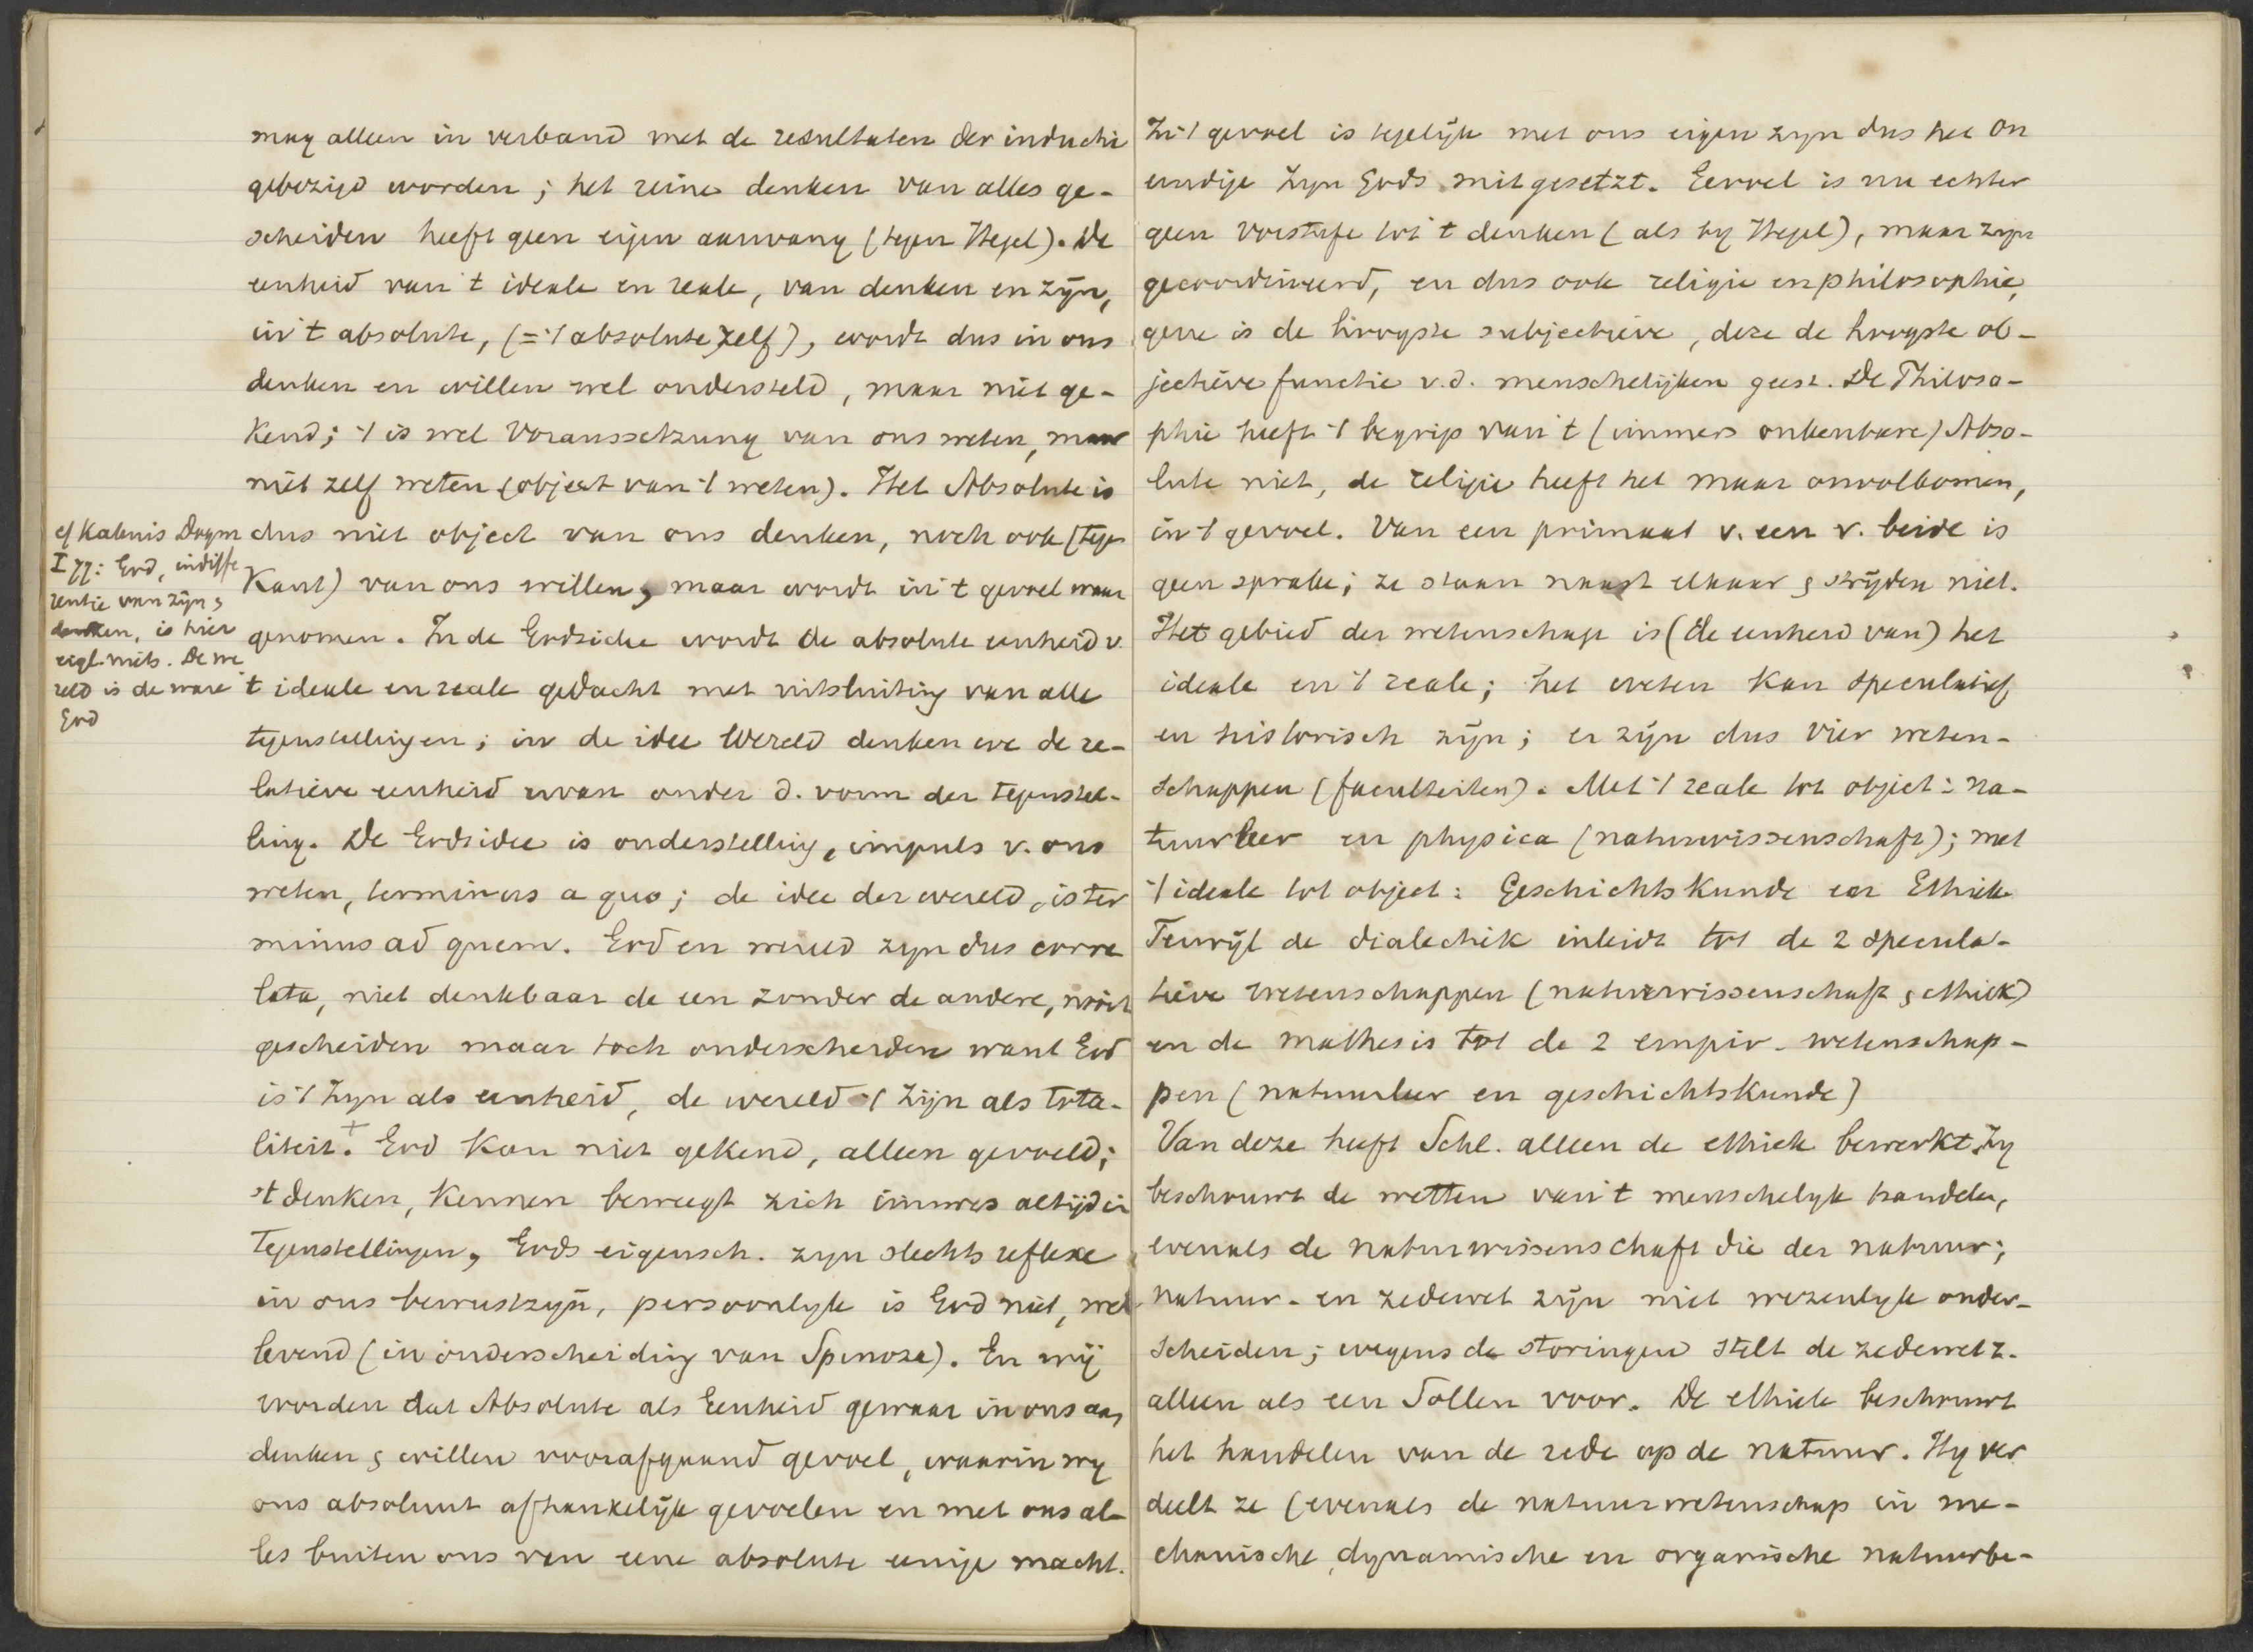 mag alleen in verband met de resultaten der inductie
gebezigd worden; het reine denken van alles ge-
scheiden heeft geen eigen aanvang (tegen Hegel). De
eenheid van 't ideale en reale, van denken en zijn,
in 't absolute, (= 't absolute zelf), wordt dus in ons
denken en willen wel ondersteld, maar niet ge-
kend; 't is wel Voraussetzung van ons weten, maar
niet zelf weten (object van 't weten). Het Absolute is
dus niet object van ons denken, noch ook (tegen
Kant) van ons willen, maar wordt in 't gevoel waar
genomen. In de Godsidee wordt de absolute eenheid v.
't ideale en reale gedacht met uitsluiting van alle
tegenstellingen; in de idee Wereld denken we de re-
latieve eenheid ervan onder d. vorm der tegenstel-
ling. De Godsidee is onderstelling, impuls v. ons
weten, terminus a quo; de idee der wereld, is ter
minus ad quem. God en wereld zyn dus corre
lata, niet denkbaar de een zonder de andere, nooit
gescheiden maar toch onderscheiden want God
is 't Zyn als eenheid, de wereld 't Zijn als tota-
liteit.+ God kan niet gekend, alleen gevoeld;
't denken, kennen beweegt zich immers altijd in
tegenstellingen, Gods eigensch. zyn slechts reflexe
in ons bewustzyn, persoonlyk is God niet, wel
levend (in onderscheiding van Spinoza). En wij
worden dat Absolute als Eenheid gewaar in ons aan
denken & willen voorafgaand gevoel, waarin wy
ons absoluut afhankelijk gevoelen en met ons al-
les buiten ons van eene absolute eenige macht.
cf Kahnis Dogm
I 77: God, indiffe
rentie van zijn &
denken, is hier
eigl. niets. De we
reld is de ware
God
In 't gevoel is tegelijk met ons eigen zyn dus het on
eindige Zyn Gods mitgesetzt. Gevoel is nu echter
geen Vorstufe tot 't denken (als by Hegel), maar zyn
gecoordineerd, en dus ook religie en philosophie,
gene is de hoogste subjectieve, deze de hoogste ob-
jectieve functie v.d. menschelijken geest. De Philoso-
phie heeft 't begrip van 't (immers onkenbare) Abso-
lute niet, de religie heeft het maar onvolkomen,
in 't gevoel. Van een primaat v. een v. beide is
geen sprake; ze staan naast elkaar & strijden niet.
Het gebied der wetenschap is (de eenheid van) het
ideale en 't reale; het weten kan speculatief
en historisch zijn; er zijn dus vier weten-
schappen (faculteiten). Met 't reale tot object: na-
tuurleer en physica (naturwissenschaft); met
't ideale tot object: Geschichtskunde en Ethiek
Terwijl de dialectiek inleidt tot de 2 specula-
tieve wetenschappen (naturwissenschaft & ethiek)
en de mathesis tot de 2 empir. wetenschap-
pen (natuurleer en geschichtskunde)
Van deze heeft Schl. alleen de ethiek bewerkt. Zy
beschouwt de wetten van 't menschelyk handelen,
evenals de naturwissenschaft die der natuur;
natuur- en zedewet zijn niet wezenlyk onder-
scheiden; wegens de storingen stelt de zedewet z.
alleen als een Sollen voor. De ethiek beschouwt
het handelen van de rede op de natuur. Hy ver
deelt ze (evenals de natuurwetenschap in me-
chanische, dynamische en organische natuurbe-